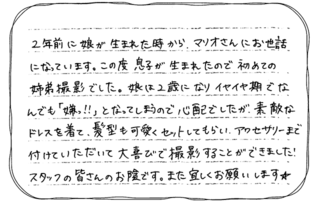 2年前に娘が生まれた時から、マリオさんにお世話
になっています。この度息子が生まれたので初めての
姉弟撮影でした。娘は2歳になりイヤイヤ期でな
んでも「嫌っ!!」となってしまうので心配でしたが、素敵な
ドレスを着て、髪型も可愛くセットしてもらい、アクセサリーまで
付けていただいて大喜びで撮影することができました!
スタッフの皆さんのお陰です。また宜しくお願いします★